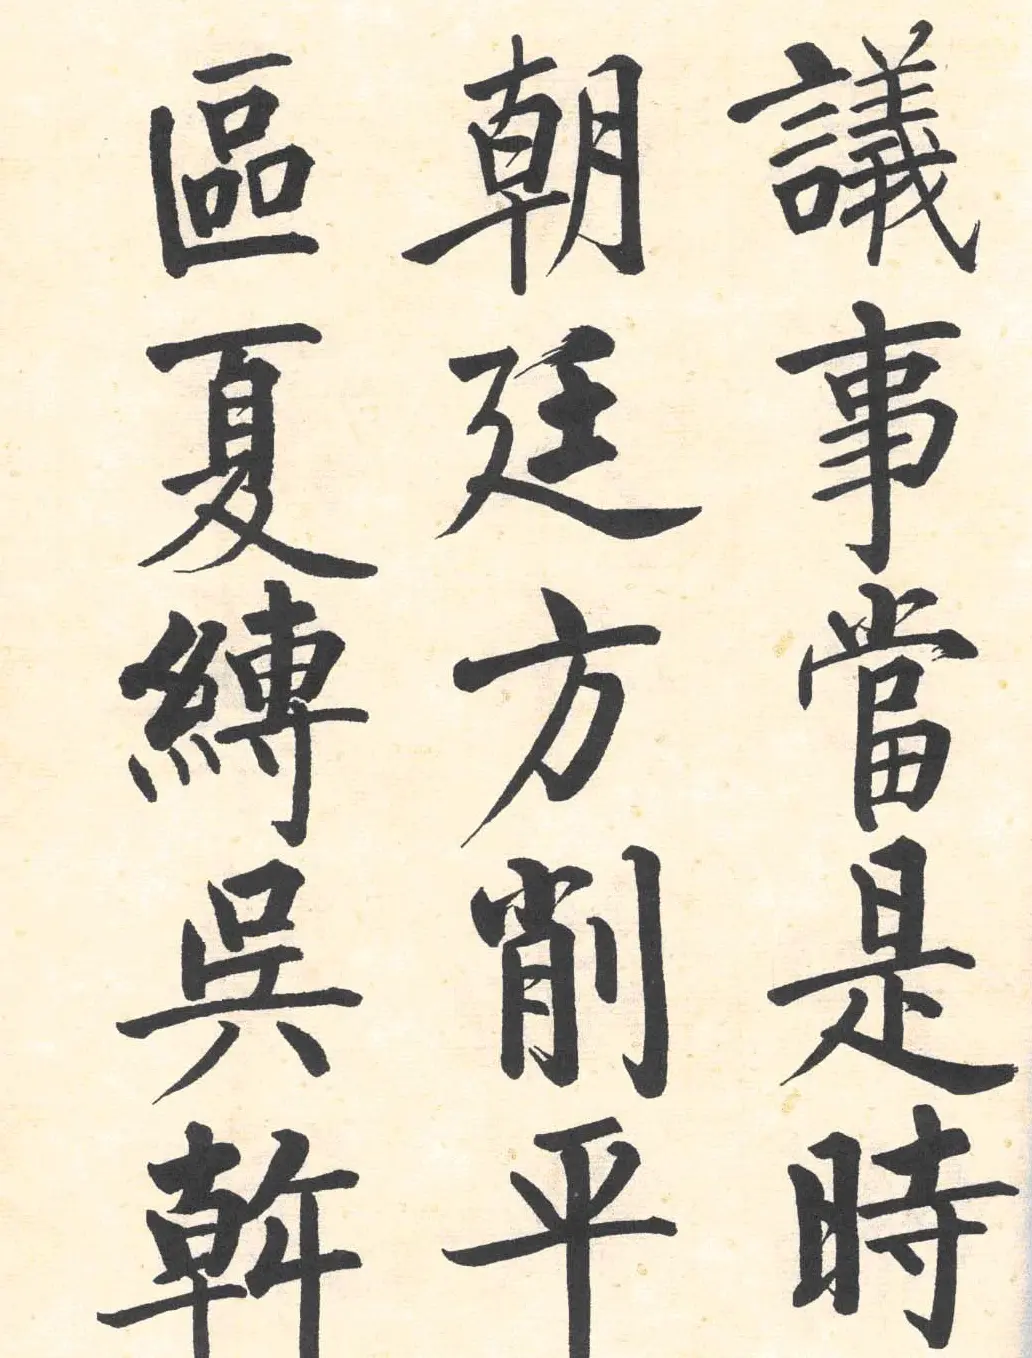 議事當是時
朝廷方削平
區夏縛吳斡